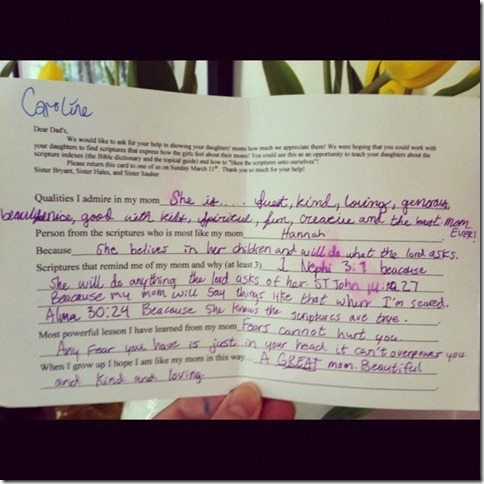 Caroline
Dear Dad's,
We would like to ask for your help in showing your daughters' moms how much we appreciate them! We were hoping that you could work with
your daughters to find scriptures that express how the girls feel about their moms! You could use this as an opportunity to teach your daughters about the
scripture indexes (the Bible dictionary and the topical guide) and how to "liken the scriptures unto ourselves"!
Please return this card to one of us on Sunday March 11th. Thank you so much for your help!
Sister Bryant, Sister Hales, and Sister Sauber
Qualities I admire in my mom She is.... Quiet, kind, loving, generous,
beautiful, nice, good with kids, spiritual, fun, creacive and the best mom
EVER!
Person from the scriptures who is most like my mom Hannah
Because She belives in her children and will do what the lord asks.
Scriptures that remind me of my mom and why (at least 3) I Nephi 3:7 beacause
she will do anything the lord asks of her. ST John 14:27
Beacause my mom will say things like that when I'm scared.
Alma 30:24 Beacause She knows the scriptures are true.
Most powerful lesson I have learned from my mom Fears cannot hurt you.
Any fear you have is just in your head it can't overpower you.
When I grow up I hope I am like my mom in this way... A GREAT mom. Beautiful
and kind and loving.